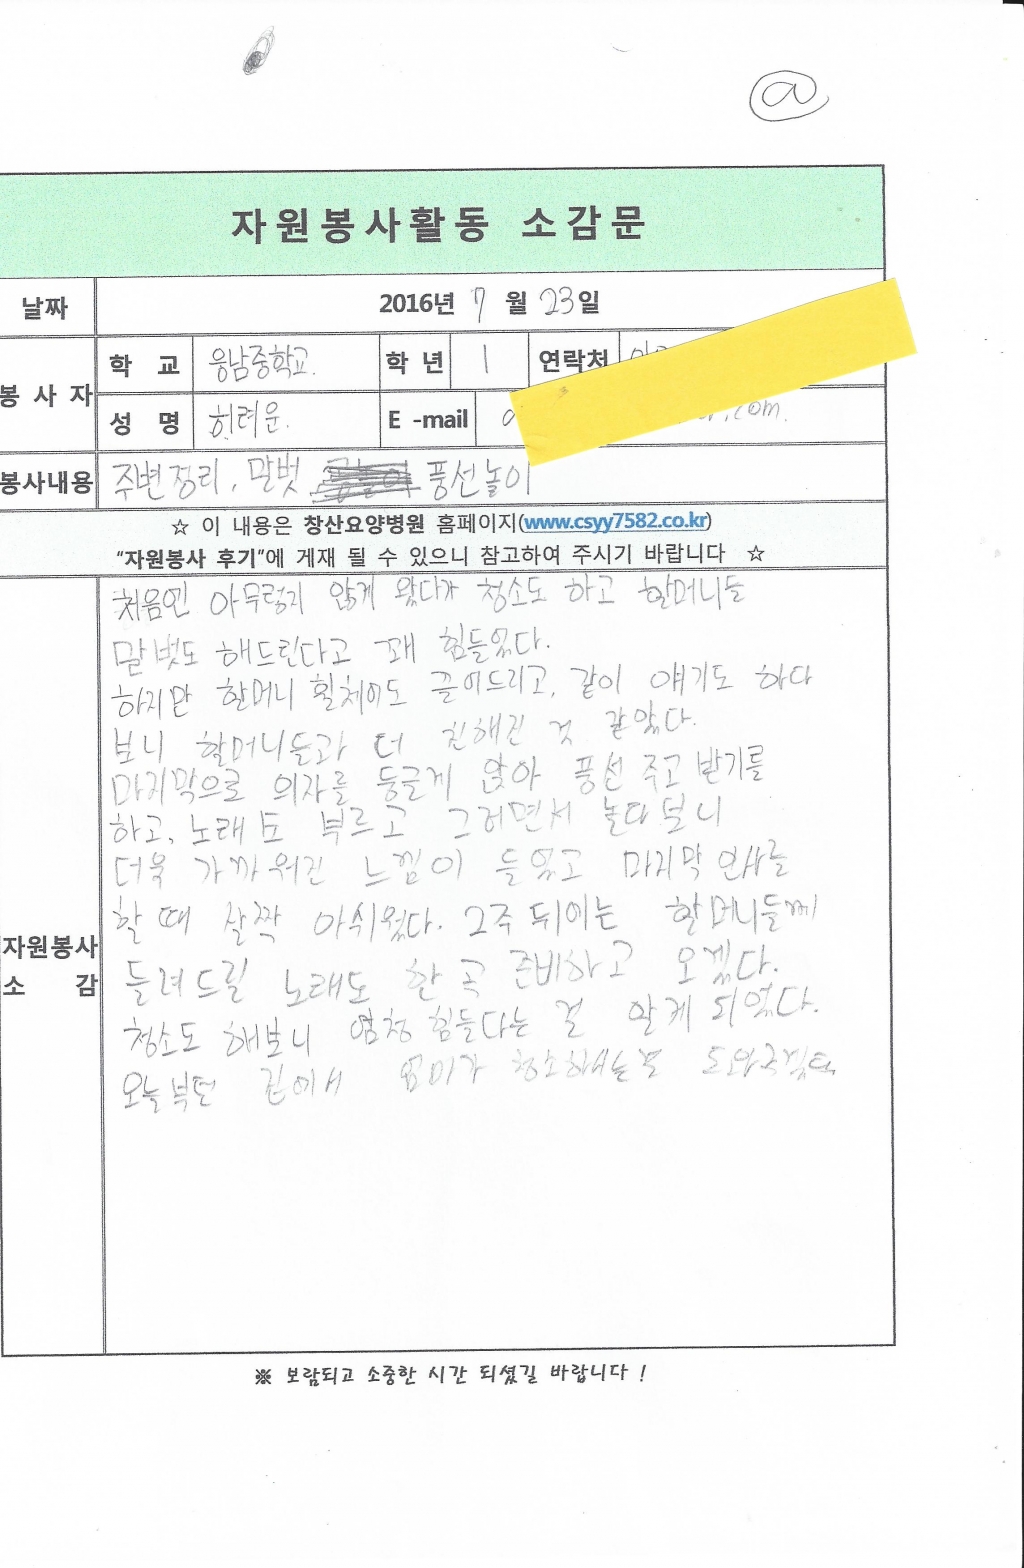 @
자원봉사활동 소감문
날짜 2016년 7 월 23일
봉사자 학 교 웅남중학교. 학 년 1 연락처
성 명 허려운. E -mail .com.
봉사내용 주변정리, 말벗 풍선놀이
☆ 이 내용은 창산요양병원 홈페이지(www.csyy7582.co.kr)
"자원봉사 후기"에 게재 될 수 있으니 참고하여 주시기 바랍니다 ☆
자원봉사
소 감
처음엔 아무렇지 않게 왔다가 청소도 하고 할머니들
말벗도 해드린다고 꽤 힘들었다.
하지만 할머니 휠체어도 끌어드리고, 같이 얘기도 하다
보니 할머니들과 더 친해진 것 같았다.
마지막으로 의자를 둥글게 앉아 풍선 주고 받기를
하고, 노래도 부르고 그러면서 놀다보니
더욱 가까워진 느낌이 들었고 마지막 인사를
할 때 살짝 아쉬웠다. 2주 뒤에는 할머니들께
들려드릴 노래도 한 곡 준비하고 오겠다.
청소도 해보니 엄청 힘들다는 걸 알게 되었다.
오늘부턴 집에서 엄마가 청소하는걸
※ 보람되고 소중한 시간 되셨길 바랍니다 !